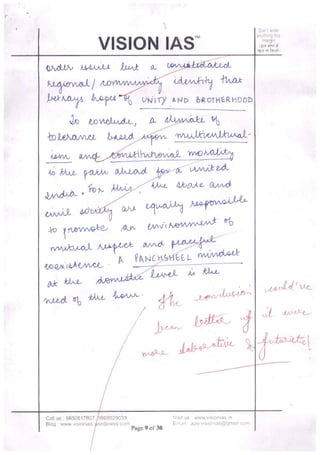 VISION IAS™
Don't write anything this margin
order issues but a consolidated
regional / community identity that
betrays hopes of UNITY AND BROTHERHOOD
To conclude, a climate of
tolerance based upon multicultural-
ism and constitutional morality
is the path ahead for a united
India. For this, the state and
civil society are equally responsible
to promote an environment of
mutual respect and peaceful
coexistence. A PANCHSHEEL mindset
at the domestic level is the
need of the hour.
The conclusion could've
been better if it were
more elaborative & futuristic!
Call us : 9650617807, 9968029039
Visit us : www.visionias.in
Blog : www.visionias.wordpress.com
Email : ajay.visionias@gmail.com
Page 9 of 36